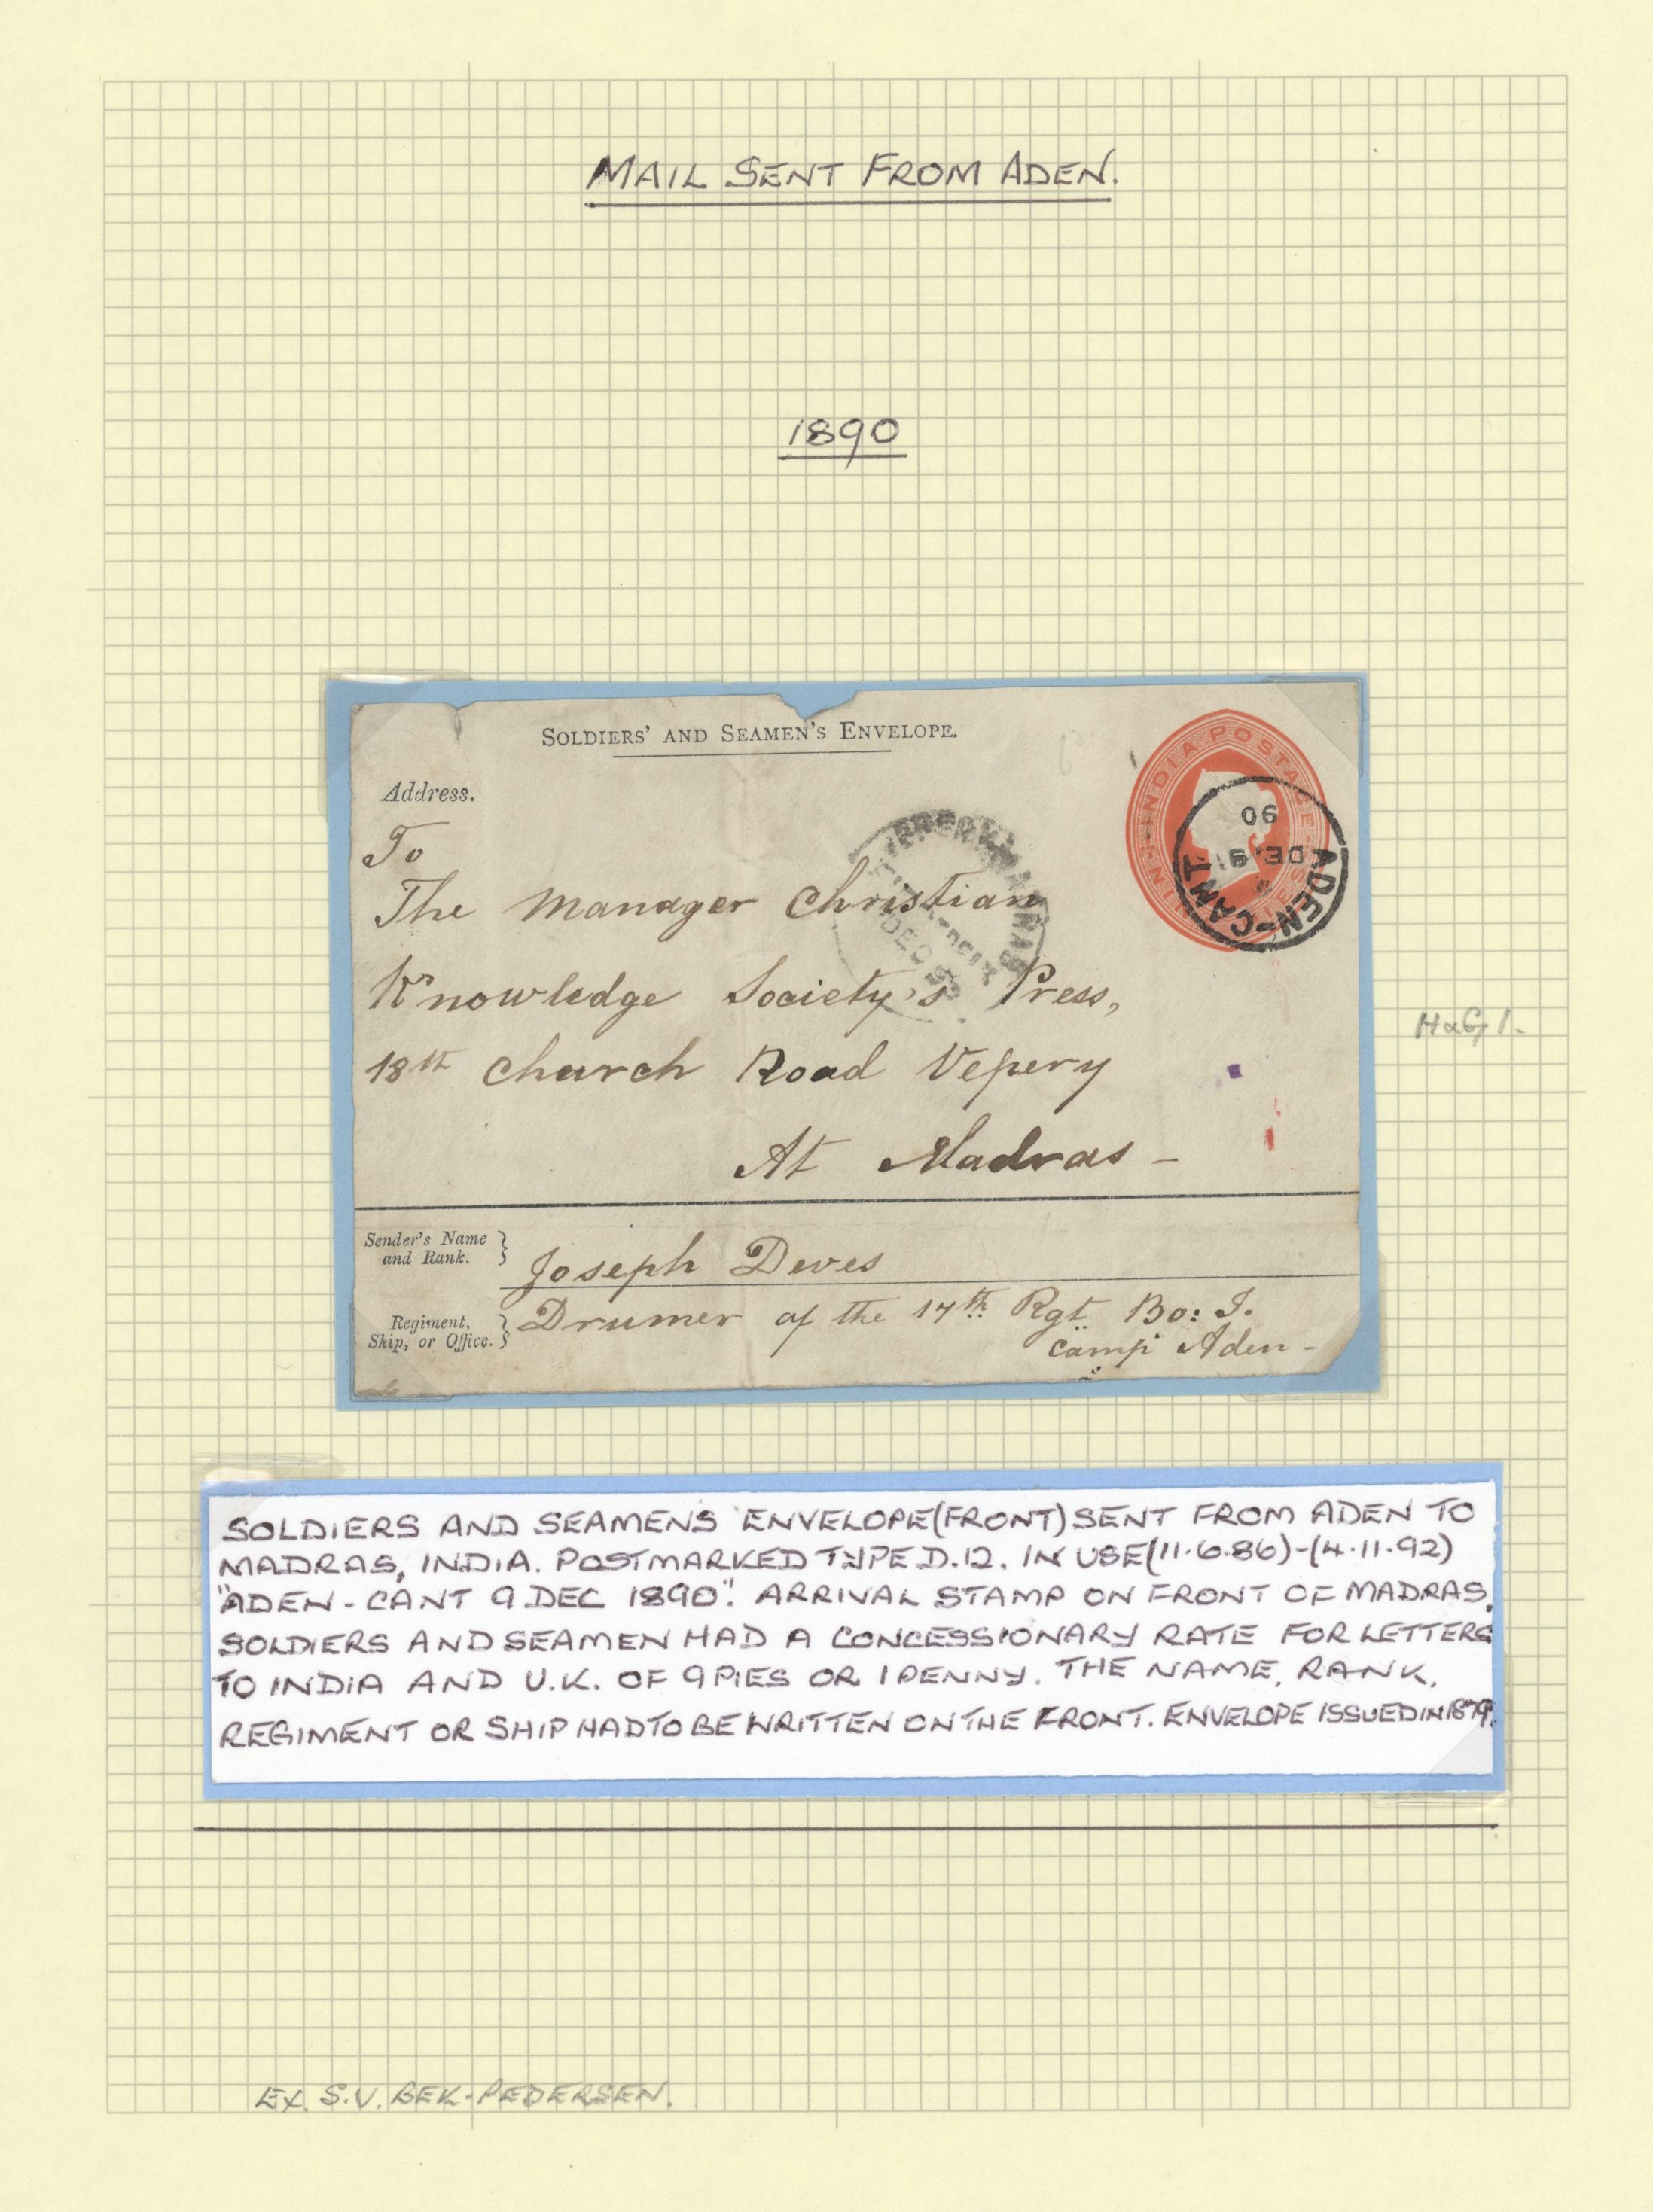 MAIL SENT FROM ADEN.
1890
SOLDIERS' AND SEAMEN'S ENVELOPE.
INDIA POSTAGE
NINE PIES
90
DE. 9
ADEN-CANT.
Address.
To
The Manager Christian
Knowledge Society's Press,
18th Church Road Vepery
At Madras -
VEPERY MADRAS
DEC 90
Sender's Name
and Rank.
Joseph Deves
Regiment,
Ship, or Office.
Drumer of the 17th Rgt Bo: I.
Camp Aden -
H&G 1.
SOLDIERS AND SEAMENS ENVELOPE (FRONT) SENT FROM ADEN TO
MADRAS, INDIA. POSTMARKED TYPE D.12. IN USE (11.6.86)-(4.11.92)
"ADEN-CANT 9 DEC 1890". ARRIVAL STAMP ON FRONT OF MADRAS.
SOLDIERS AND SEAMEN HAD A CONCESSIONARY RATE FOR LETTERS
TO INDIA AND U.K. OF 9 PIES OR 1 PENNY. THE NAME, RANK,
REGIMENT OR SHIP HAD TO BE WRITTEN ON THE FRONT. ENVELOPE ISSUED IN 1879.
EX. S.V. BEK-PEDERSEN.